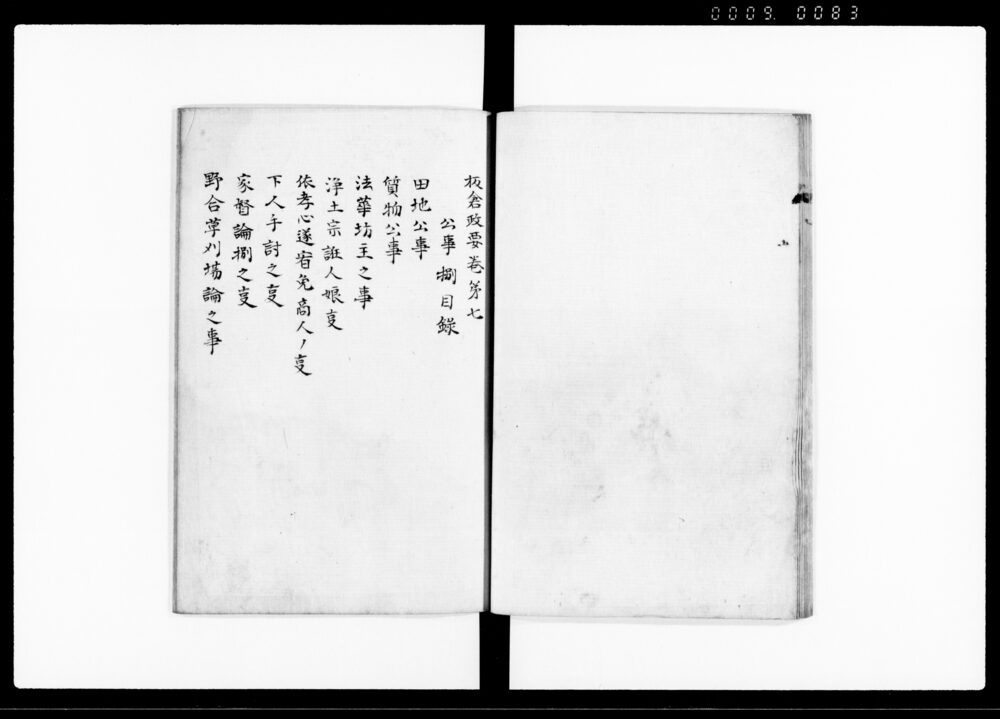 0009. 0083
板倉政要巻第七
公事捌目録
田地公事
質物公事
法華坊主之事
浄土宗誑人娘叓
依孝心遂宥免商人ノ叓
下人手討之叓
家督論捌之叓
野合草刈場論之事